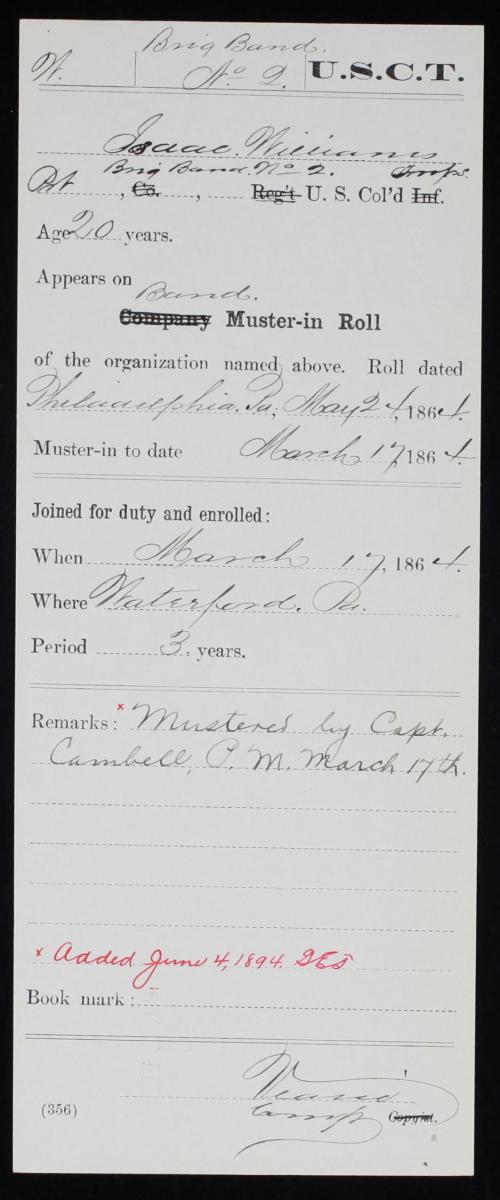 Brig Band.
W. No 2. U.S.C.T.
Isaac Williams
Brig Band. No 2. Troops.
Pvt , Co. , Reg't U. S. Col'd Inf.
Age 20 years.
Appears on
Band.
Company Muster-in Roll
of the organization named above. Roll dated
Philadelphia. Pa; May 24, 1864.
Muster-in to date March 17, 1864.
Joined for duty and enrolled:
When March 17, 1864.
Where Waterford. Pa.
Period 3. years.
Remarks: x Mustered by Capt.
Cambell, P. M. March 17th.
x Added June 4, 1894.
Book mark:
Comp
(356) Copyist.